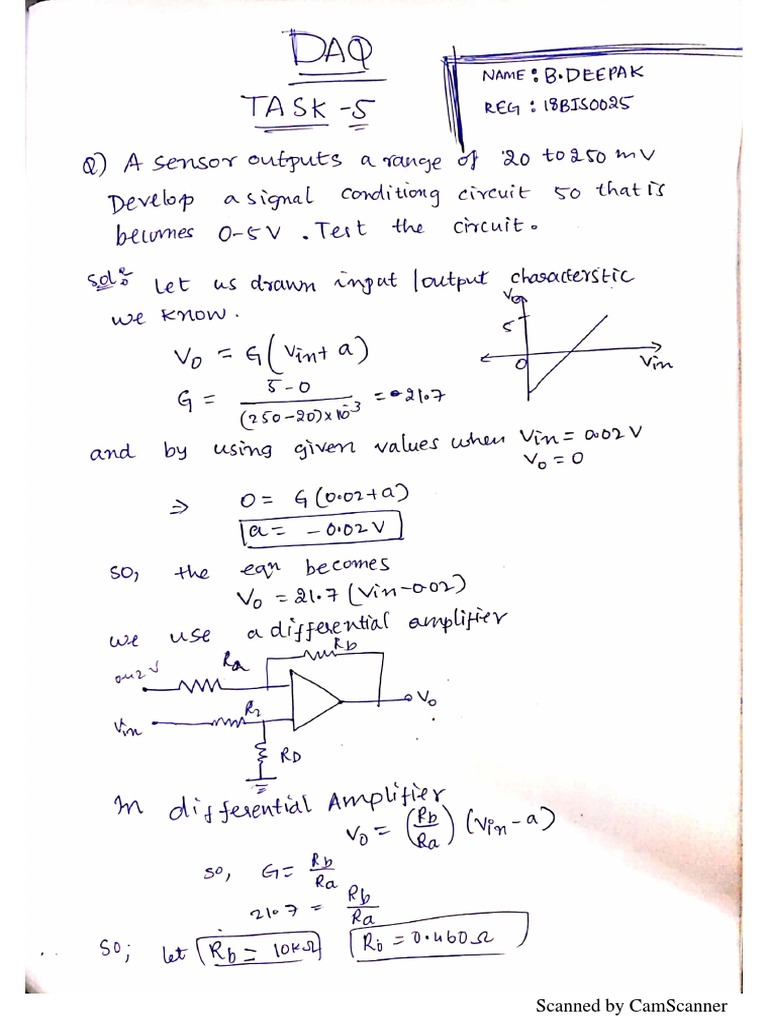 DAQ
TASK - 5
NAME : B.DEEPAK
REG : 18BIS0025
Q) A sensor outputs a range of 20 to 250 mV
Develop a signal conditiong circuit so that is
becumes 0-5V . Test the circuit.
Sol: Let us drawn input /output characterstic
we know.
V0
5
0
Vin
V0 = G(Vin + a)
G = 5-0 / (250-20)×10^-3 = 21.7
and by using given values when Vin = 0.02V
V0 = 0
⇒ 0 = G(0.02+a)
a = -0.02V
so, the eqn becomes
V0 = 21.7 (Vin-0.02)
we use a differential amplifier
Rb
Ra
V
V0
R2
Vin
RD
In differential Amplifier
V0 = (Rb/Ra) (Vin - a)
so, G = Rb/Ra
21.7 = Rb/Ra
So; let Rb = 10kΩ
= 0.460Ω
Scanned by CamScanner